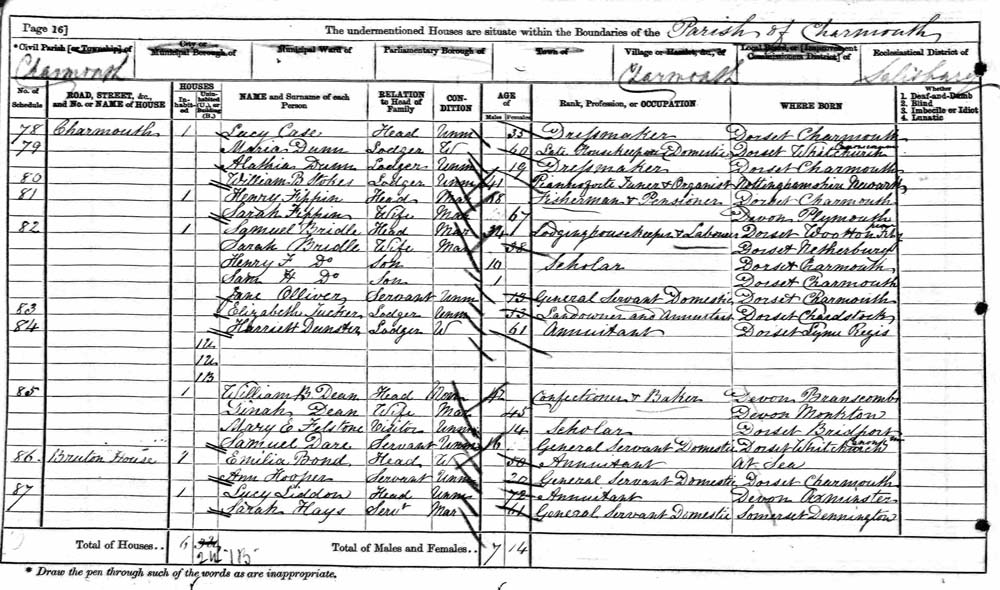 Page 16] The undermentioned Houses are situate within the Boundaries of the Parish of Charmouth
*Civil Parish [or Township] of City or Municipal Borough of Municipal Ward of Parliamentary Borough of Town of Village or Hamlet, &c., of Local Board, or [Improvement Commissioners District] of Ecclesiastical District of
Charmouth Charmouth Salisbury
No. of Schedule ROAD, STREET, &c., and No. or NAME of HOUSE HOUSES Inhabited Uninhabited (U.), or Building (B.) NAME and Surname of each Person RELATION to Head of Family CONDITION AGE of Males Females Rank, Profession, or OCCUPATION WHERE BORN Whether 1. Deaf-and-Dumb 2. Blind 3. Imbecile or Idiot 4. Lunatic
78 Charmouth 1 Lucy Case Head Unm 33 Dressmaker Dorset Charmouth
79 Maria Dunn Lodger W 60 Late Housekeeper Domestic Dorset Whitchurch
Alathia Dunn Lodger Unm 19 Dressmaker Dorset Charmouth
80 William B Stokes Lodger Unm 41 Pianoforte Tuner & Organist Nottinghamshire Newark
81 1 Henry Fippin Head Mar 68 Fisherman & Pensioner Dorset Charmouth
Sarah Fippin Wife Mar 67 Devon Plymouth
82 1 Samuel Bridle Head Mar 34 Lodginghousekeeper & Labourer Dorset Wootton
Sarah Bridle Wife Mar 38 Dorset Netherbury
Henry F Do Son 10 Scholar Dorset Charmouth
Sam H Do Son 1 Dorset Charmouth
Jane Olliver Servant Unm 13 General Servant Domestic Dorset Charmouth
83 Elizabeth Tucker Lodger Unm 53 Landowner and Annuitant Dorset Chardstock
84 Harriett Dunster Lodger W 61 Annuitant Dorset Lyme Regis
1U
1U
1B
85 1 William B. Dean Head Mar 42 Confectioner & Baker Devon Branscomb
Dinah Dean Wife Mar 45 Devon Monkton
Mary E Felstone Visitor Unm 14 Scholar Dorset Bridport
Samuel Dare Servant Unm 16 General Servant Domestic Dorset Whitchurch
86 Bruton House 1 Emilia Bond Head W 50 Annuitant At Sea
Ann Hooper Servant Unm 20 General Servant Domestic Dorset Charmouth
87 1 Lucy Liddon Head Unm 72 Annuitant Devon Axminster
Sarah Hays Servt Mar 61 General Servant Domestic Somerset Dennington
Total of Houses.. 6 2U 1B Total of Males and Females.. 7 14
* Draw the pen through such of the words as are inappropriate.